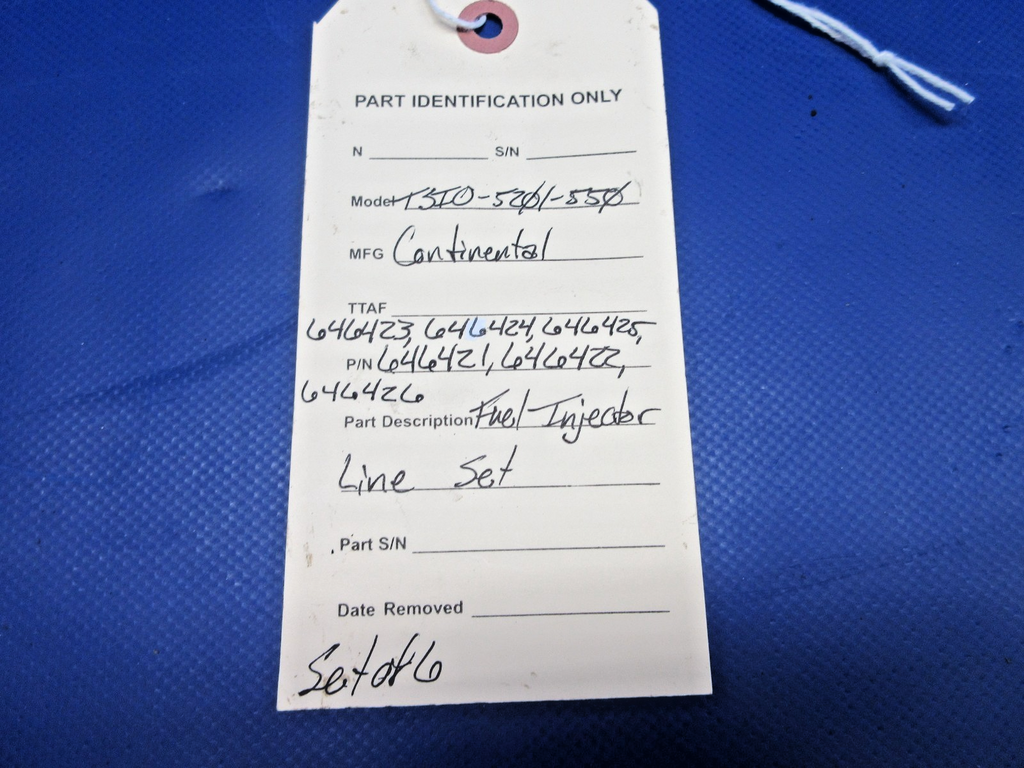 PART IDENTIFICATION ONLY
N ________ S/N ________
Model TSIO-520/-550
MFG Continental
TTAF ________
646423, 646424, 646425,
P/N 646421, 646422,
646426
Part Description Fuel Injector
Line Set
Part S/N ________
Date Removed ________
Set of 6